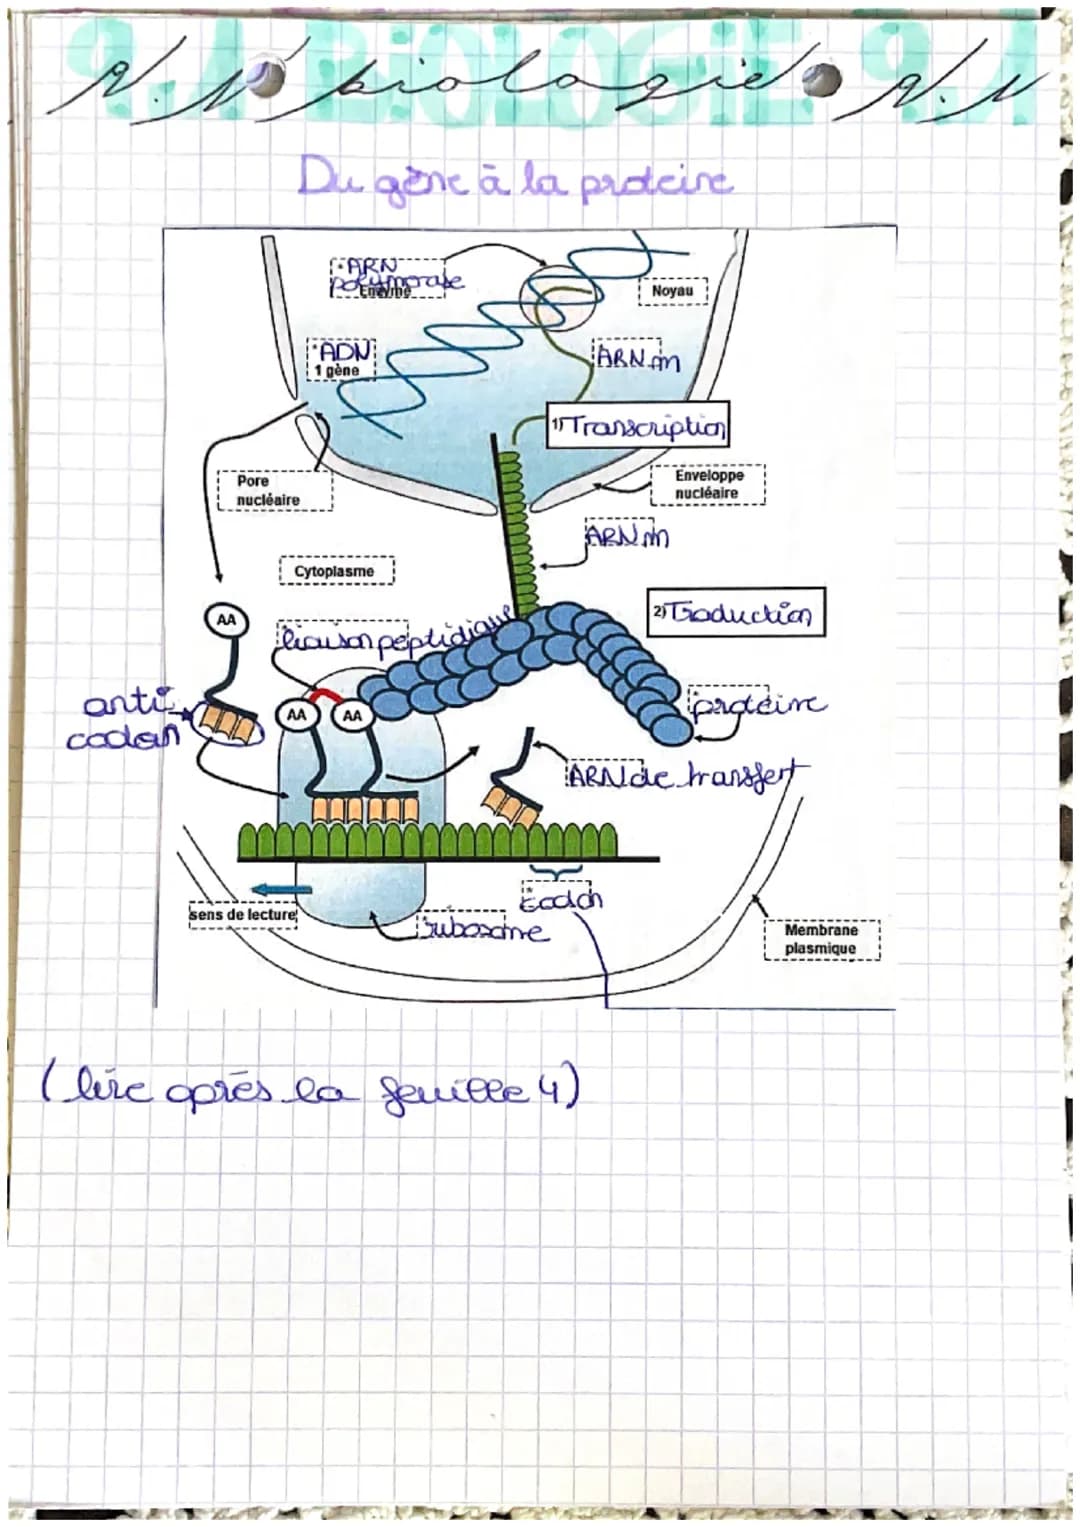 9.1 BIOLOGIE 9.1
9.1 biologie 9.1
Du gène à la proteine
• ARN
polymerase
Enzyme
Noyau
*ADN
1 gène
ARN m
1) Transcription
Pore
nucléaire
Enveloppe
nucléaire
ARN m
Cytoplasme
AA
2) Traduction
liaison peptidique
anti
codon
AA
AA
protéine
ARN de transfert
sens de lecture
* codon
ribosome
Membrane
plasmique
(lire après la feuille 4)